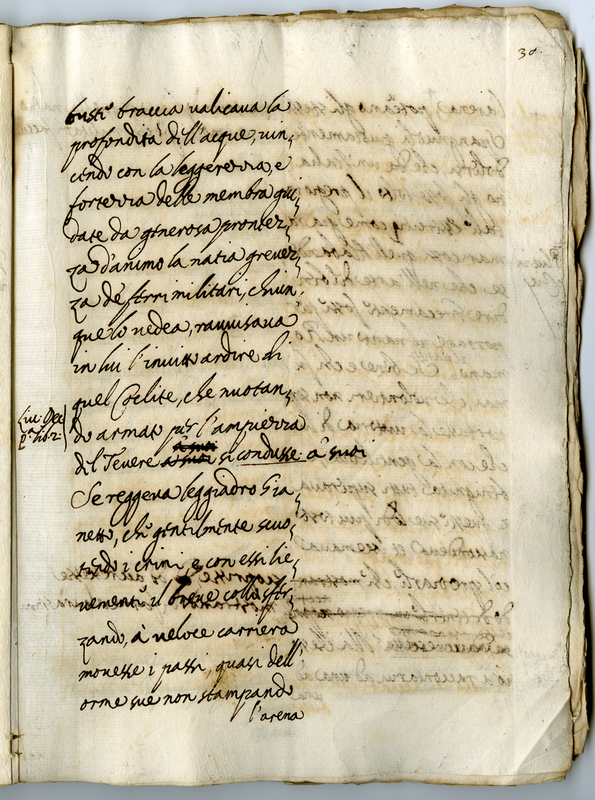 30.
busti braccia valicava la
profondità dell'acque, vin,
cendo con la leggerezza, e
fortezza delle membra gui,
date da generosa prontez,
za d'animo la natia grevez,
za de ferri militari, chiun,
que lo vedea, ravvisava
in lui l'invitto ardire di
quel Coclite, che nuotan,
Liv: Dec
P.ª lib. 2.
do armato per l'ampiezza
del Tevere si condusse à suoi
Se reggeva leggiadro Gia,
netto, che gentilmente scuo,
tendo i crini, e con essi lie,
vemente il breve collo sfer,
zando, à veloce carriera
movesse i passi, quasi dell'
orme sue non stampando
l'arena